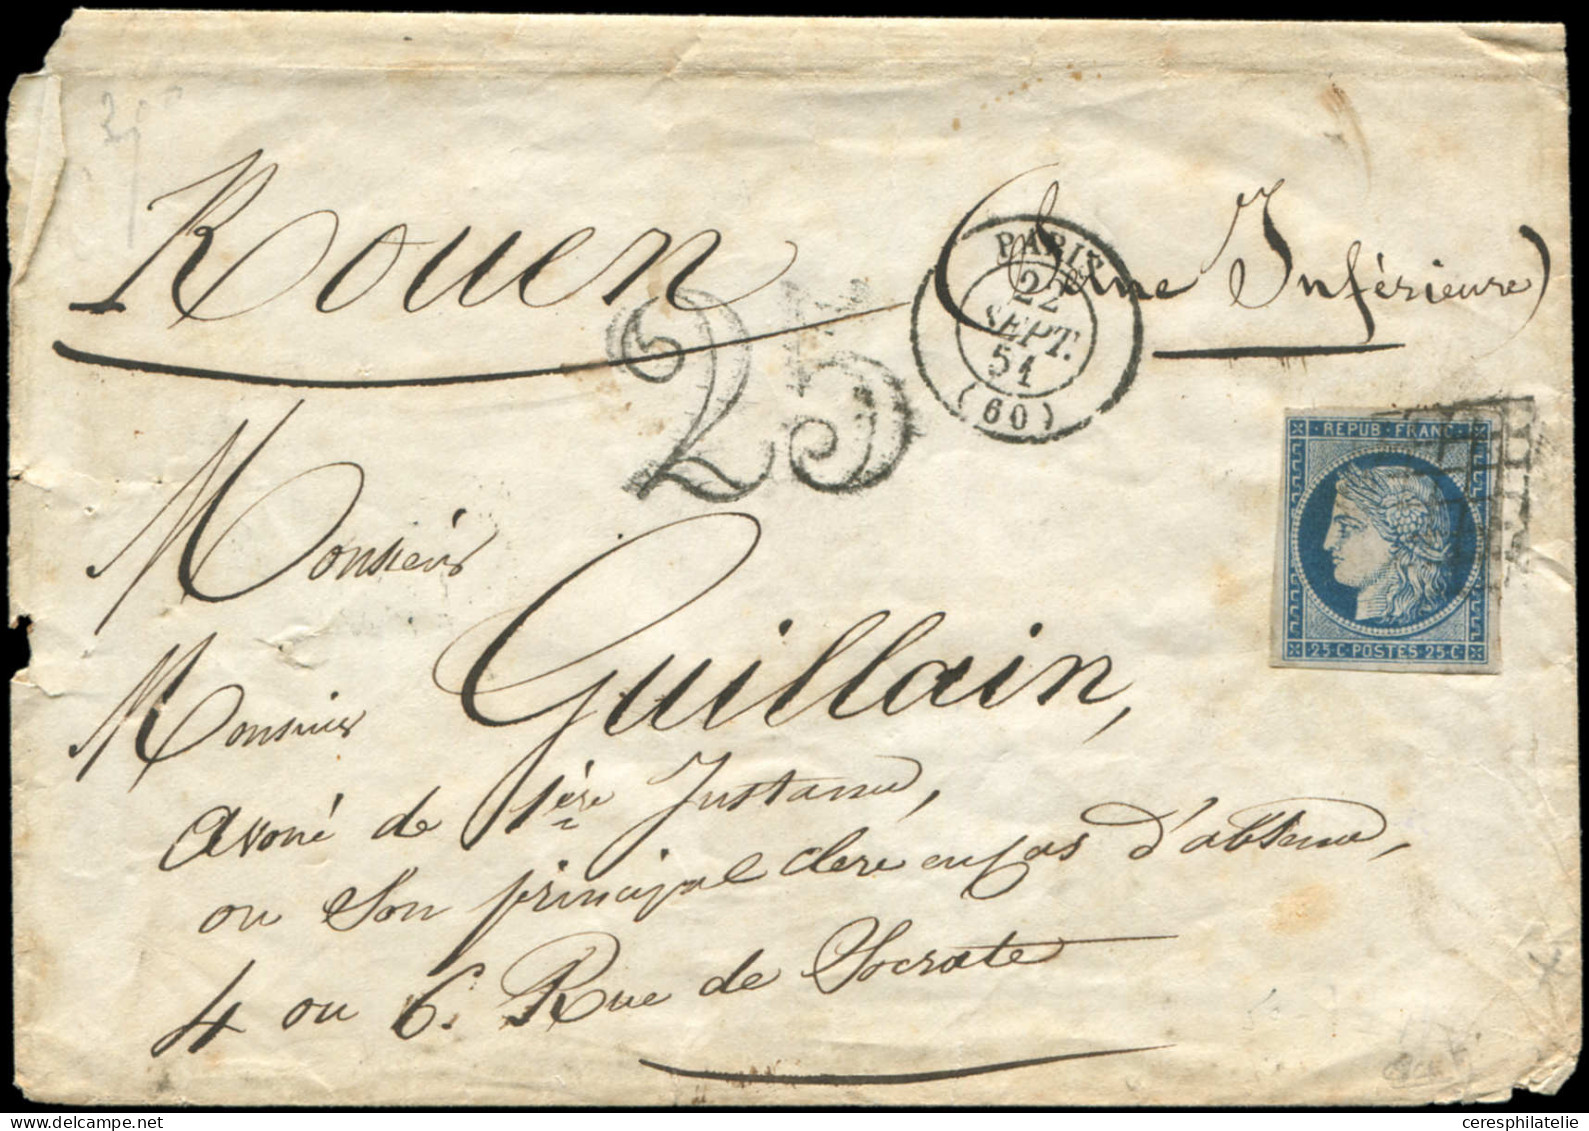 Rouen (Seine Inférieure)
25
PARIS
22
SEPT.
51
(60)
REPUB·FRANC·
25·C·POSTES·25·C·
Monsieur
Monsieur Guillain,
avoué de 1ère Instance,
ou son principal clerc en cas d'absence,
4 ou 6. Rue de Socrate
ceresphilatelie